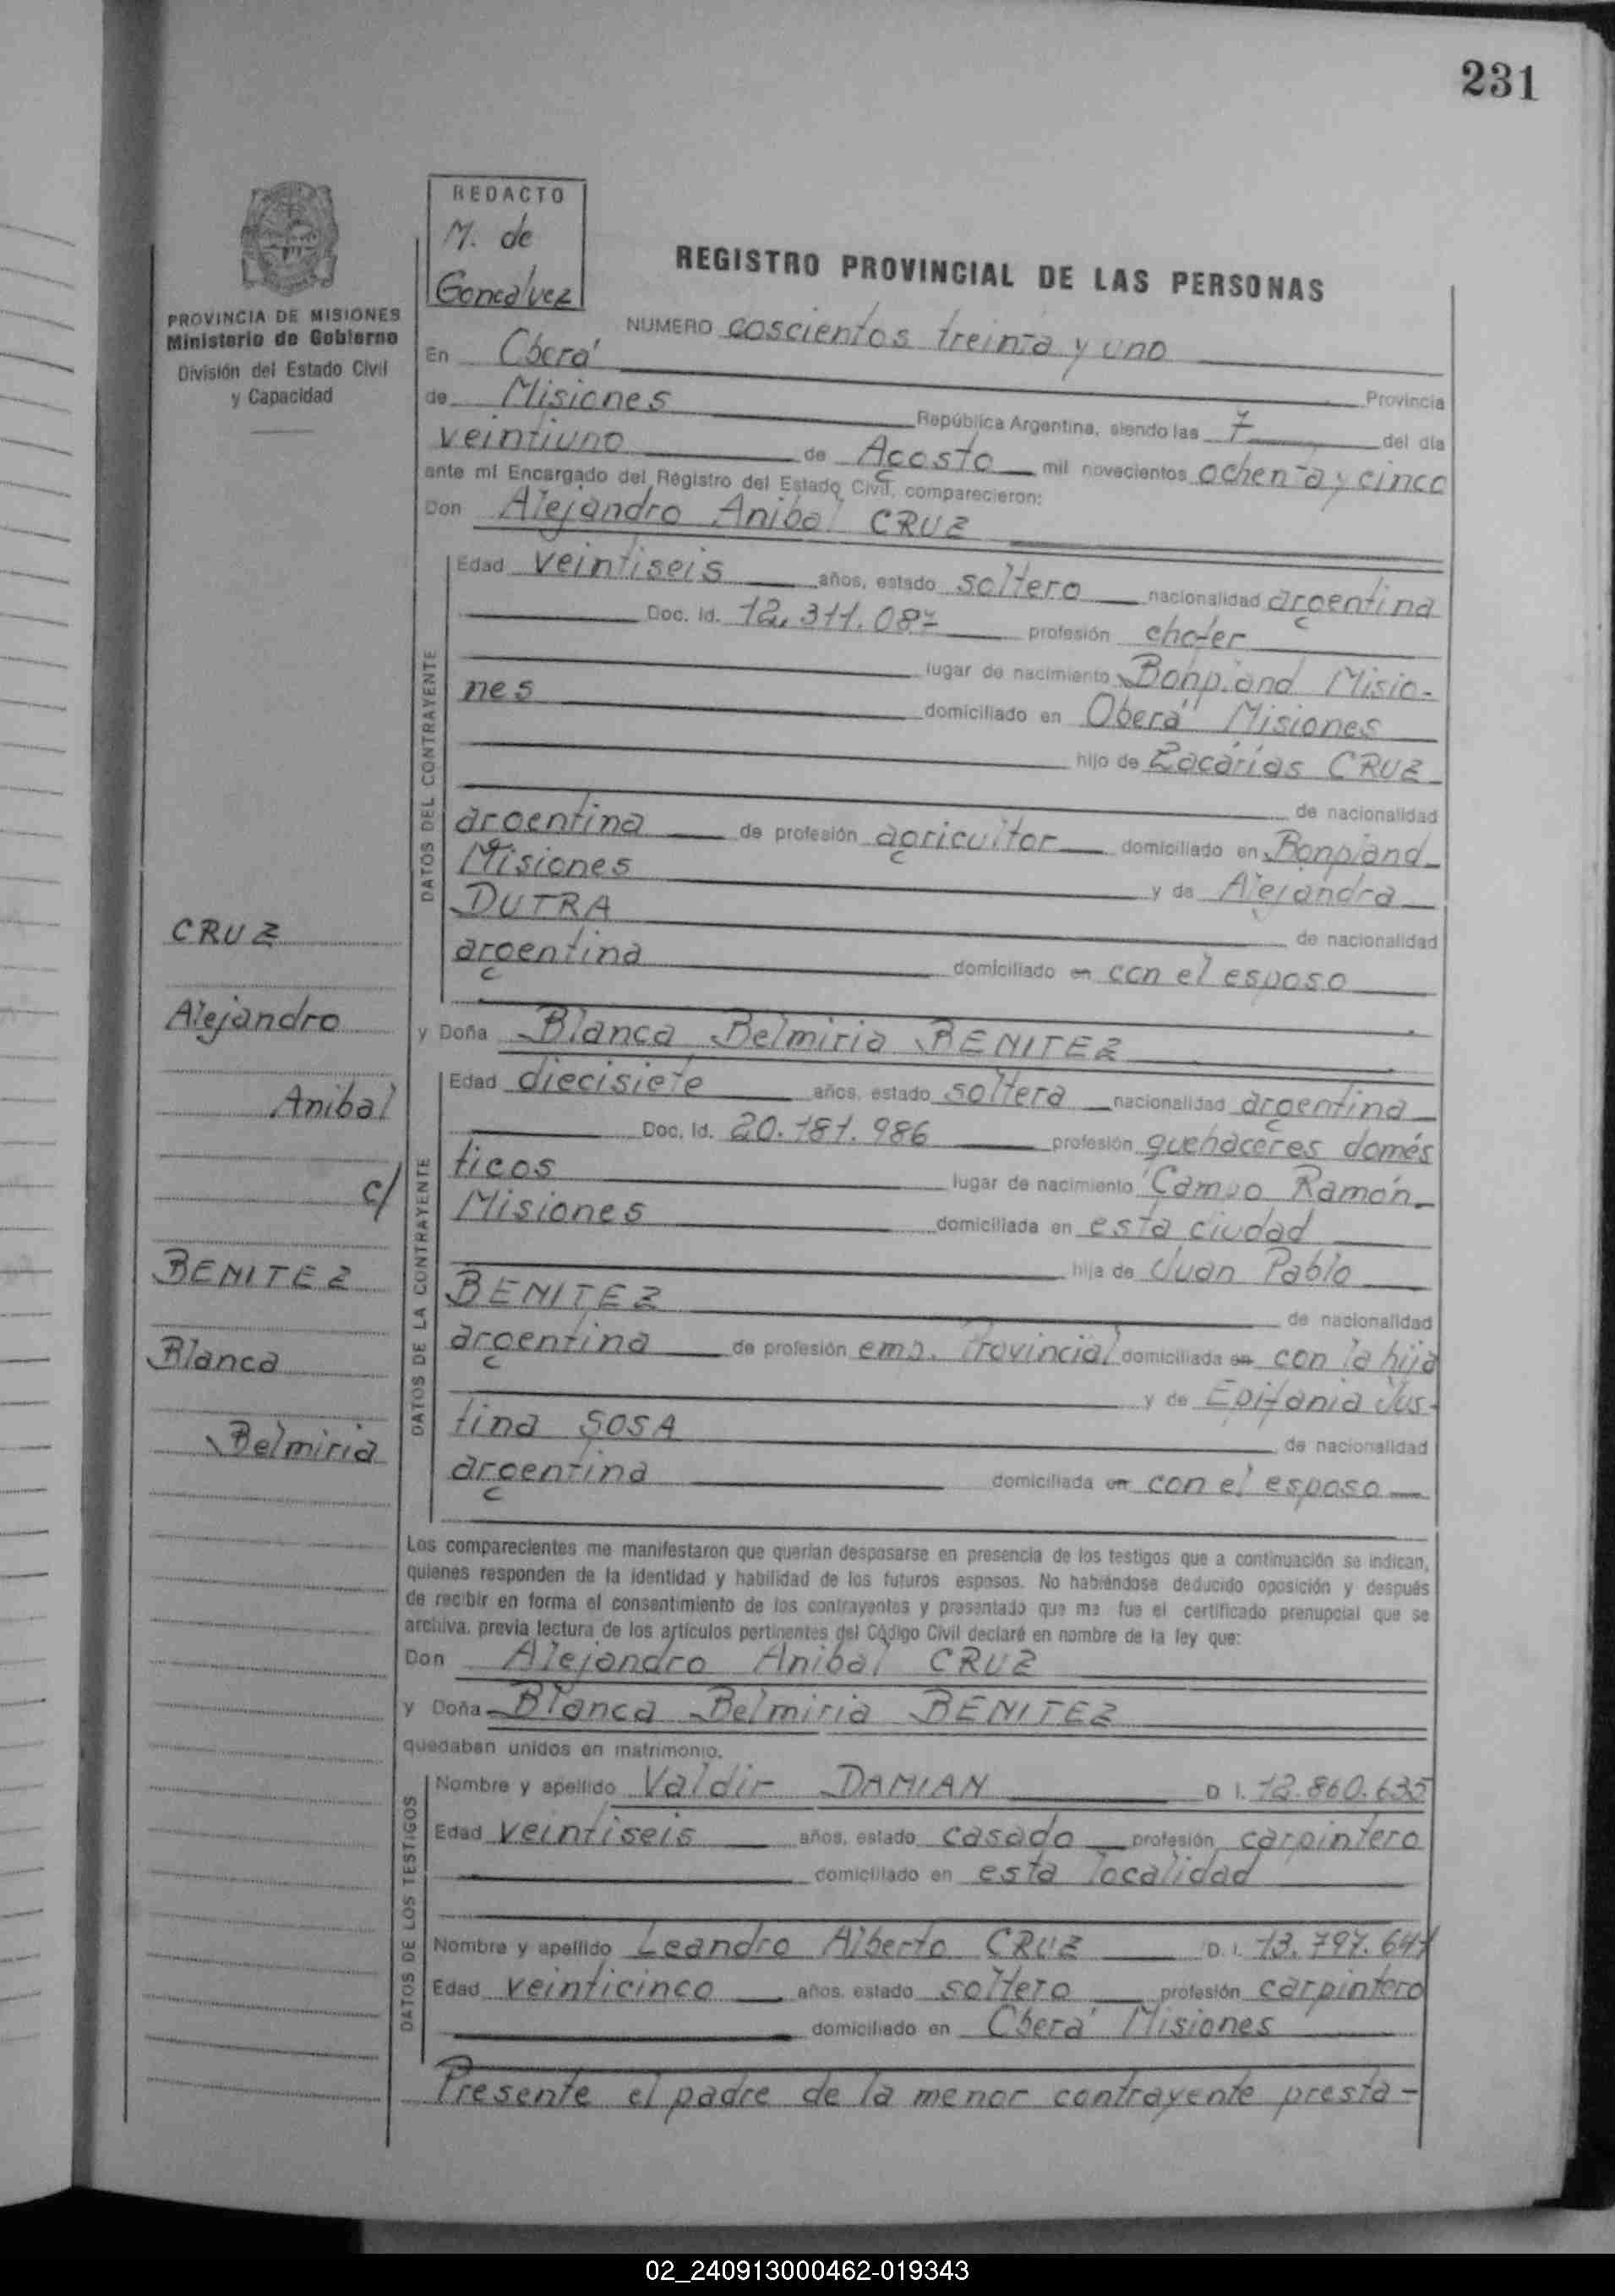 231
REDACTO
M. de
Goncalvez
REGISTRO PROVINCIAL DE LAS PERSONAS
PROVINCIA DE MISIONES
Ministerio de Gobierno
División del Estado Civil
y Capacidad
NUMERO doscientos treinta y uno
En Oberá
Provincia
de Misiones República Argentina, siendo las 7 del día
veintiuno de Agosto mil novecientos ochenta y cinco
ante mí Encargado del Registro del Estado Civil, comparecieron:
Don Alejandro Anibal CRUZ
DATOS DEL CONTRAYENTE
Edad veintiseis años, estado soltero nacionalidad argentina
Doc. Id. 12.311.087 profesión chofer
lugar de nacimiento Bonpland Misio-
nes domiciliado en Oberá Misiones
hijo de Zacarias CRUZ
de nacionalidad
argentina de profesión agricultor domiciliado en Bonpland
Misiones y de Alejandra
DUTRA de nacionalidad
argentina domiciliado en con el esposo
y Doña Blanca Belmiria BENITEZ
DATOS DE LA CONTRAYENTE
Edad diecisiete años, estado soltera nacionalidad argentina
Doc. Id. 20.181.986 profesión quehaceres domés
ticos lugar de nacimiento Campo Ramón
Misiones domiciliada en esta ciudad
hija de Juan Pablo
BENITEZ de nacionalidad
argentina de profesión emp. Provincial domiciliada en con la hija
y de Epifania Jus-
tina SOSA de nacionalidad
argentina domiciliada en con el esposo
CRUZ
Alejandro
Anibal
c/
BENITEZ
Blanca
Belmiria
Los comparecientes me manifestaron que querían desposarse en presencia de los testigos que a continuación se indican,
quienes responden de la identidad y habilidad de los futuros esposos. No habiéndose deducido oposición y después
de recibir en forma el consentimiento de los contrayentes y presentado que me fue el certificado prenupcial que se
archiva, previa lectura de los artículos pertinentes del Código Civil declaré en nombre de la ley que:
Don Alejandro Anibal CRUZ
y Doña Blanca Belmiria BENITEZ
quedaban unidos en matrimonio.
DATOS DE LOS TESTIGOS
Nombre y apellido Valdir DAMIAN D. I. 12.860.635
Edad veintiseis años, estado casado profesión carpintero
domiciliado en esta localidad
Nombre y apellido Leandro Alberto CRUZ D. I. 13.797.641
Edad veinticinco años, estado soltero profesión carpintero
domiciliado en Oberá Misiones
Presente el padre de la menor contrayente presta-
02_240913000462-019343